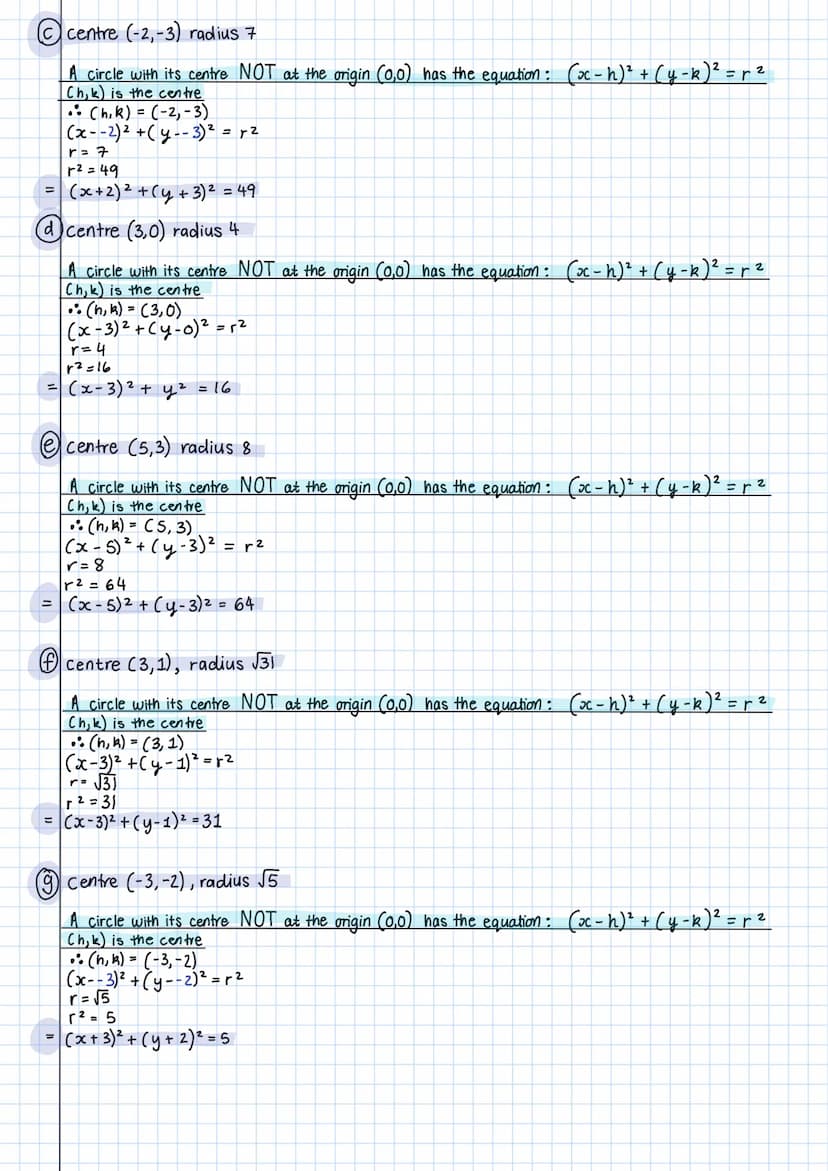 ⓒ centre (-2,-3) radius 7
A circle with its centre NOT at the origin (0,0) has the equation: (x-h)² + (y-k)² = r²
(h,k) is the centre
∴ (h,k) = (-2,-3)
(x--2)² + (y--3)² = r²
r = 7
r² = 49
= (x+2)² + (y+3)² = 49
ⓓ centre (3,0) radius 4
A circle with its centre NOT at the origin (0,0) has the equation: (x-h)² + (y-k)² = r²
(h,k) is the centre
∴ (h,k) = (3,0)
(x-3)² + (y-0)² = r²
r = 4
r² = 16
= (x-3)² + y² = 16
ⓔ centre (5,3) radius 8
A circle with its centre NOT at the origin (0,0) has the equation: (x-h)² + (y-k)² = r²
(h,k) is the centre
∴ (h,k) = (5,3)
(x-5)² + (y-3)² = r²
r = 8
r² = 64
= (x-5)² + (y-3)² = 64
ⓕ centre (3,1), radius √31
A circle with its centre NOT at the origin (0,0) has the equation: (x-h)² + (y-k)² = r²
(h,k) is the centre
∴ (h,k) = (3,1)
(x-3)² + (y-1)² = r²
r = √31
r² = 31
= (x-3)² + (y-1)² = 31
ⓖ centre (-3,-2), radius √5
A circle with its centre NOT at the origin (0,0) has the equation: (x-h)² + (y-k)² = r²
(h,k) is the centre
∴ (h,k) = (-3,-2)
(x--3)² + (y--2)² = r²
r = √5
r² = 5
= (x+3)² + (y+2)² = 5